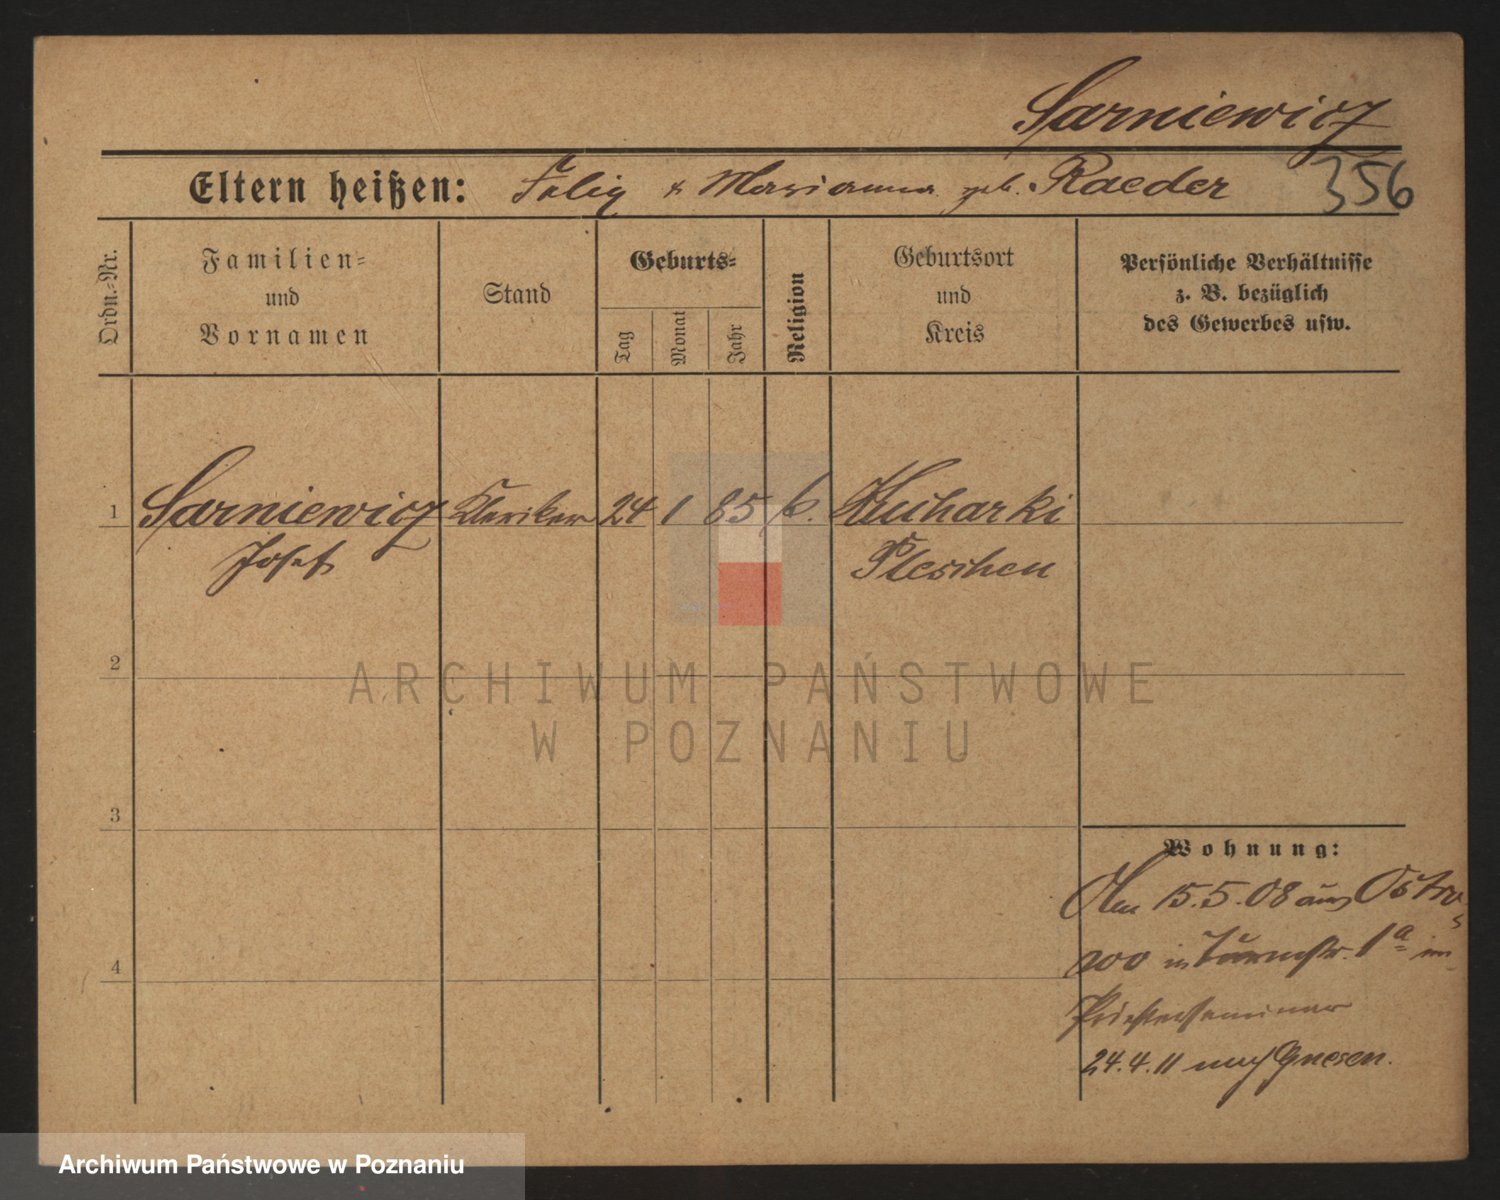 Sarniewicz
Eltern heißen: Felix & Marianna geb. Raeder 356
Ordn.-Nr.
Familien-
und
Vornamen
Stand
Geburts-
Tag
Monat
Jahr
Religion
Geburtsort
und
Kreis
Persönliche Verhältnisse
z. B. bezüglich
des Gewerbes usw.
1 Sarniewicz Kleriker 24 1 85 k. Kucharki
Josef Pleschen
2
ARCHIWUM PAŃSTWOWE
W POZNANIU
3
Wohnung:
Am 15.5.08 aus Ostro-
wo in Turmstr. 1a im
4
Priesterseminar
24.4.11 nach Gnesen.
Archiwum Państwowe w Poznaniu